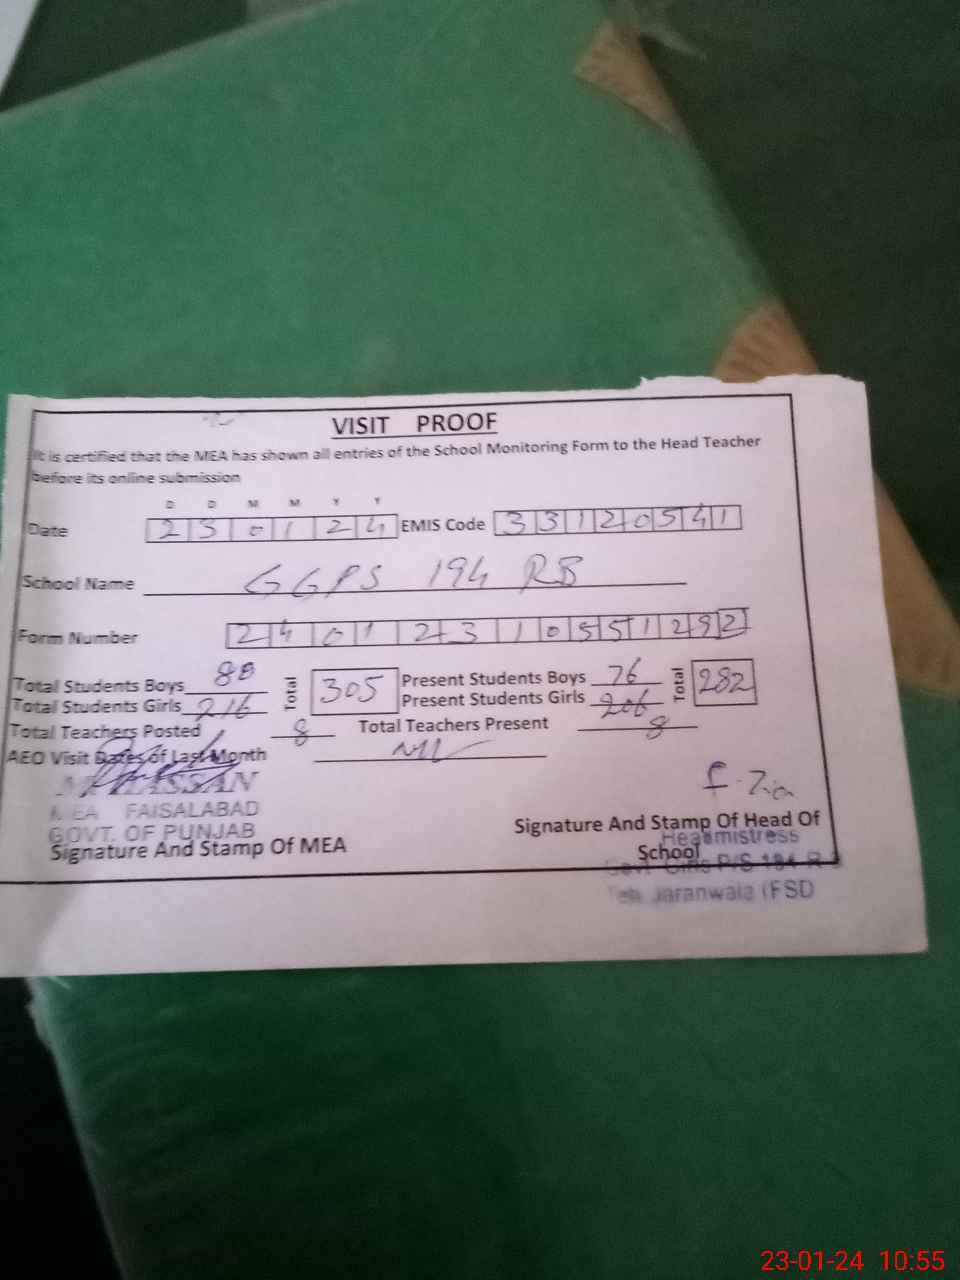 VISIT PROOF
It is certified that the MEA has shown all entries of the School Monitoring Form to the Head Teacher
before its online submission
D D M M Y Y
Date 2 3 0 1 2 4 EMIS Code 3 3 1 2 0 5 4 1
School Name GGPS 194 RB
Form Number 2 4 0 1 2 3 1 0 5 5 1 2 9 2
Total Students Boys Total 305 Present Students Boys 76 Total 282
Total Students Girls 216 Present Students Girls 206
Total Teachers Posted 8 Total Teachers Present 8
AEO Visit Dates of Last Month Nil
HASSAN
MEA FAISALABAD
GOVT. OF PUNJAB
Signature And Stamp Of MEA
Signature And Stamp Of Head Of
School
Headmistress
Govt. Girls P/S 194 R
Teh. Jaranwala (FSD
23-01-24 10:55